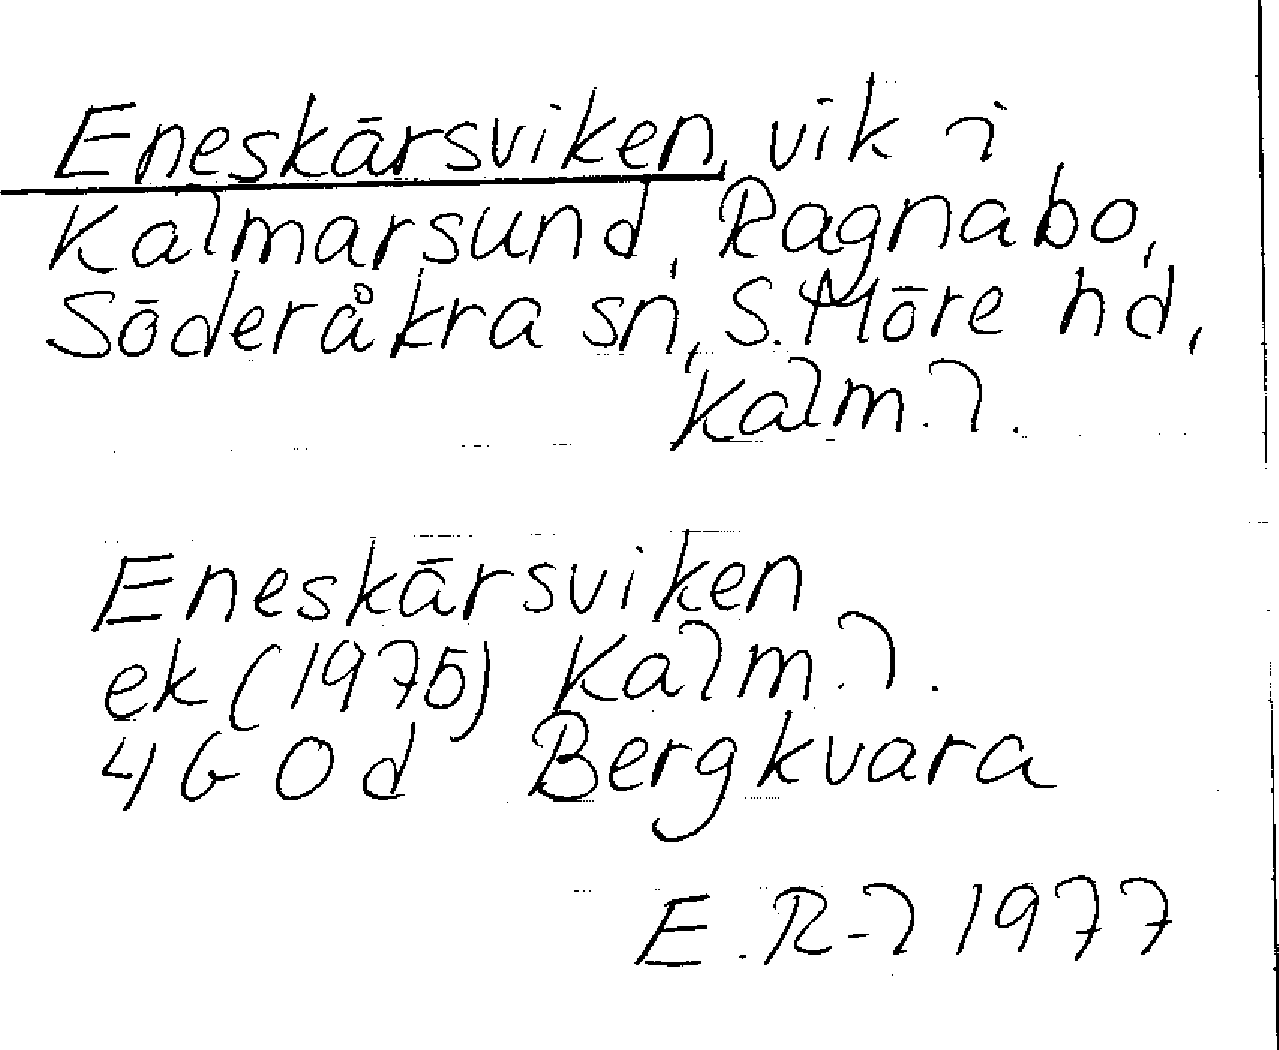 Eneskärsviken, vik i
Kalmarsund, Ragnabo,
Söderåkra sn, S. Möre hd,
Kalm. l.
Eneskärsviken
ek (1975) Kalm. l.
4G 0d Bergkvara
E. R-l 1977